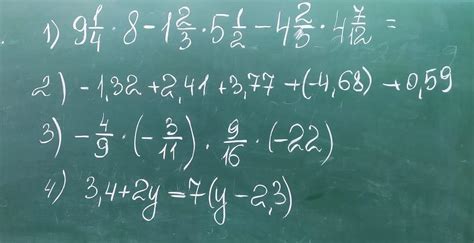 1) 9 1/4 · 8 - 1 2/3 · 5 1/2 - 4 2/3 · 4 7/12 =
2) - 1,32 + 2,41 + 3,77 + (-4,68) + 0,59
3) - 4/9 · (- 3/11) · 9/16 · (-22)
4) 3,4 + 2y = 7(y - 2,3)